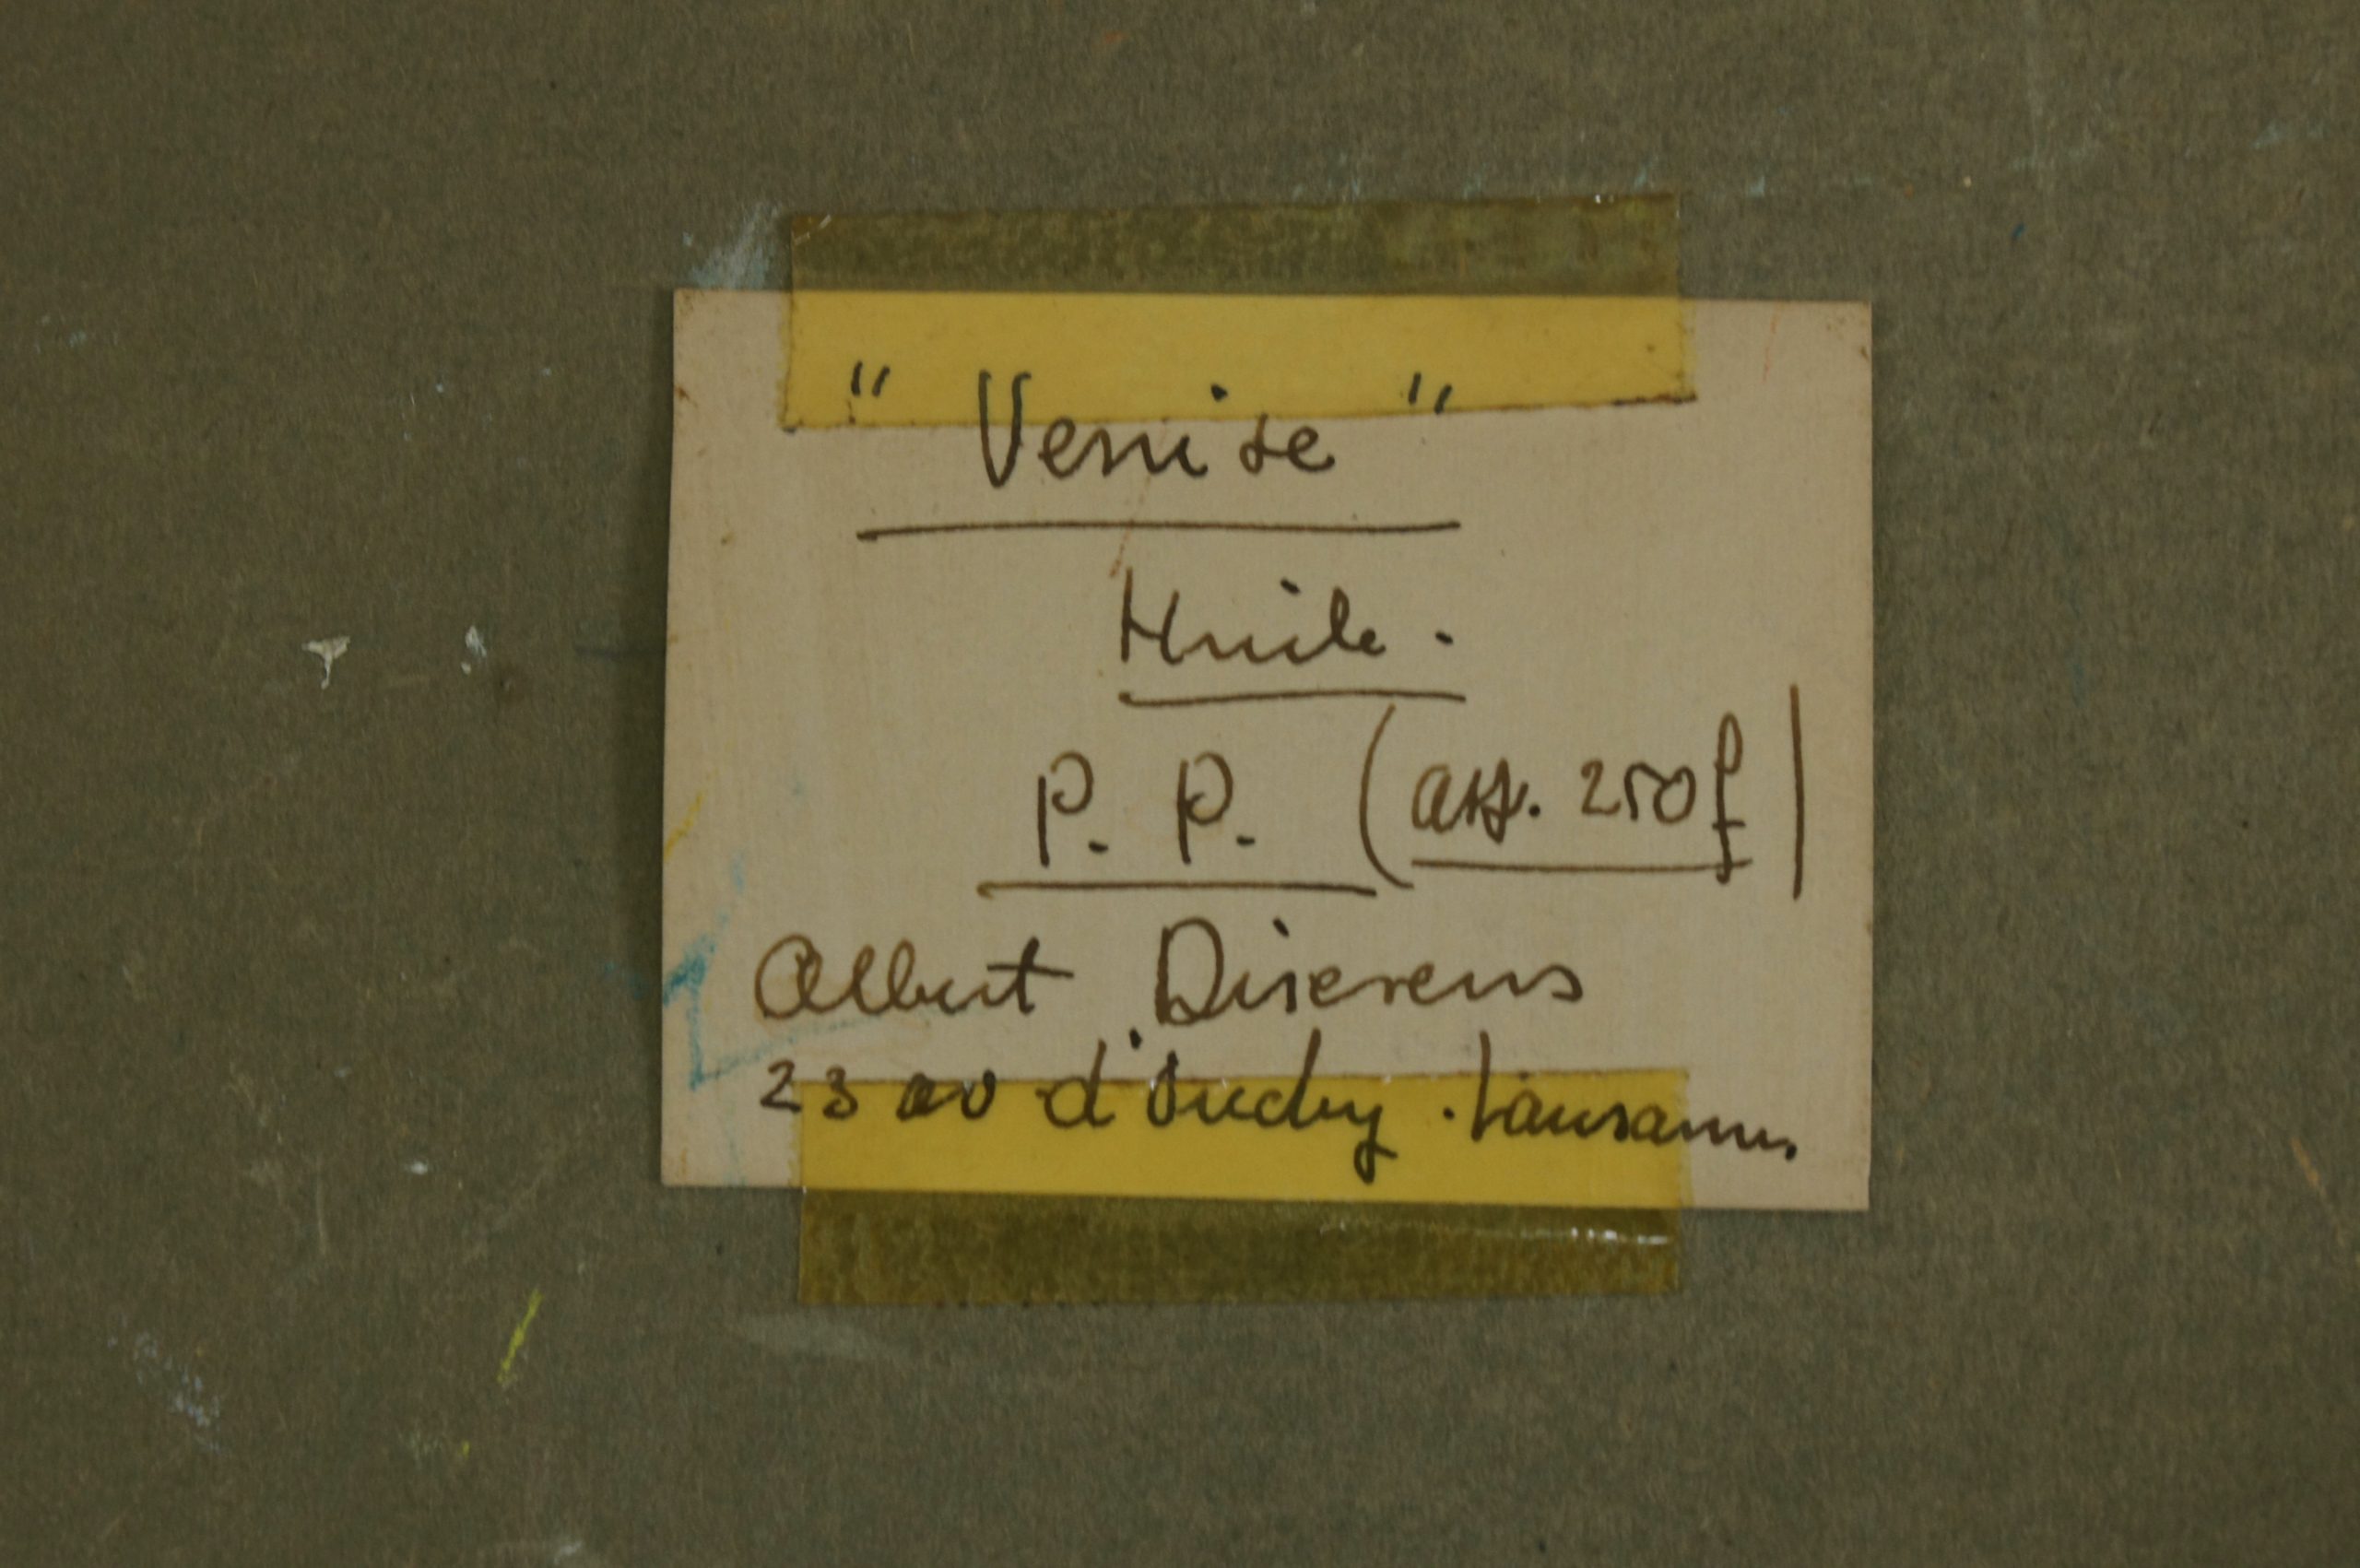 " Venise "
Huile.
P. P. (ass. 250 f)
Albert Diserens
23 av d'Ouchy. Lausanne